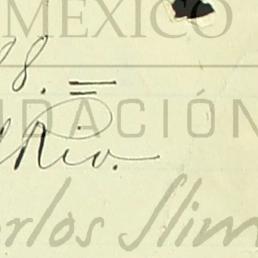 MÉXICO
88. =
NDACIÓN
l Rio.
arlos Slim